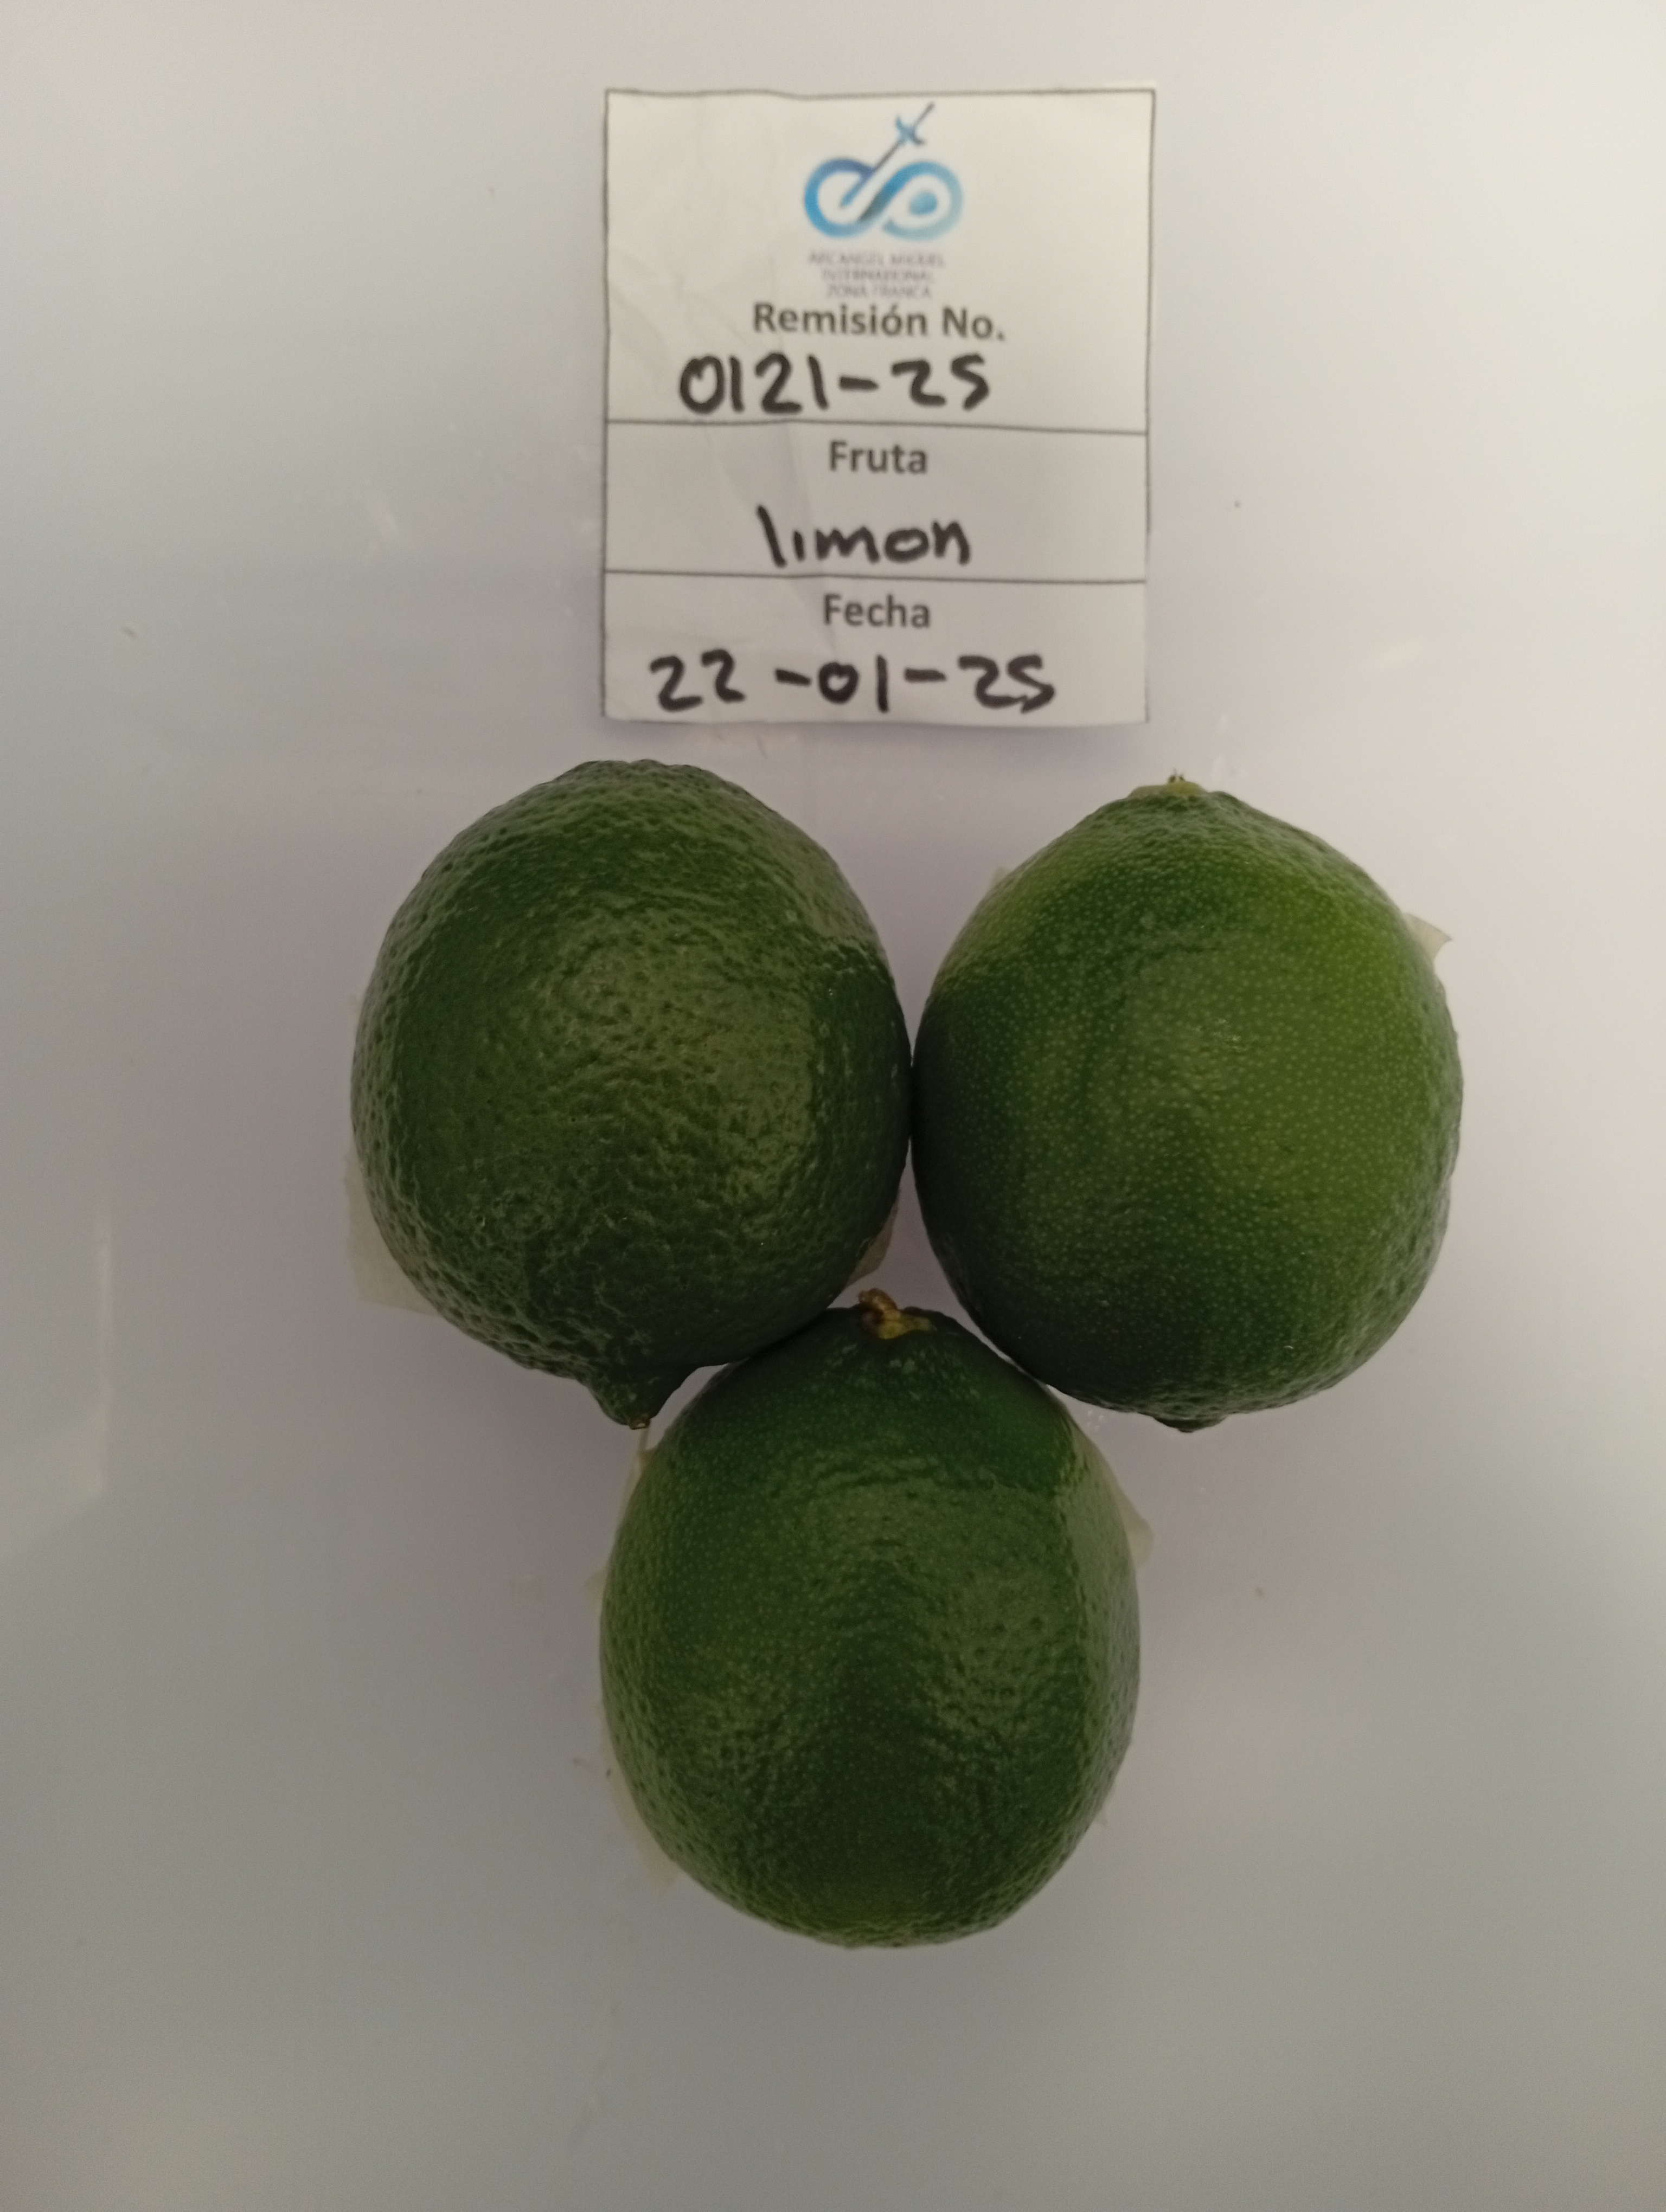 ARCANGEL MIGUEL
INTERNATIONAL
ZONA FRANCA
Remisión No.
0121-25
Fruta
limon
Fecha
22-01-25